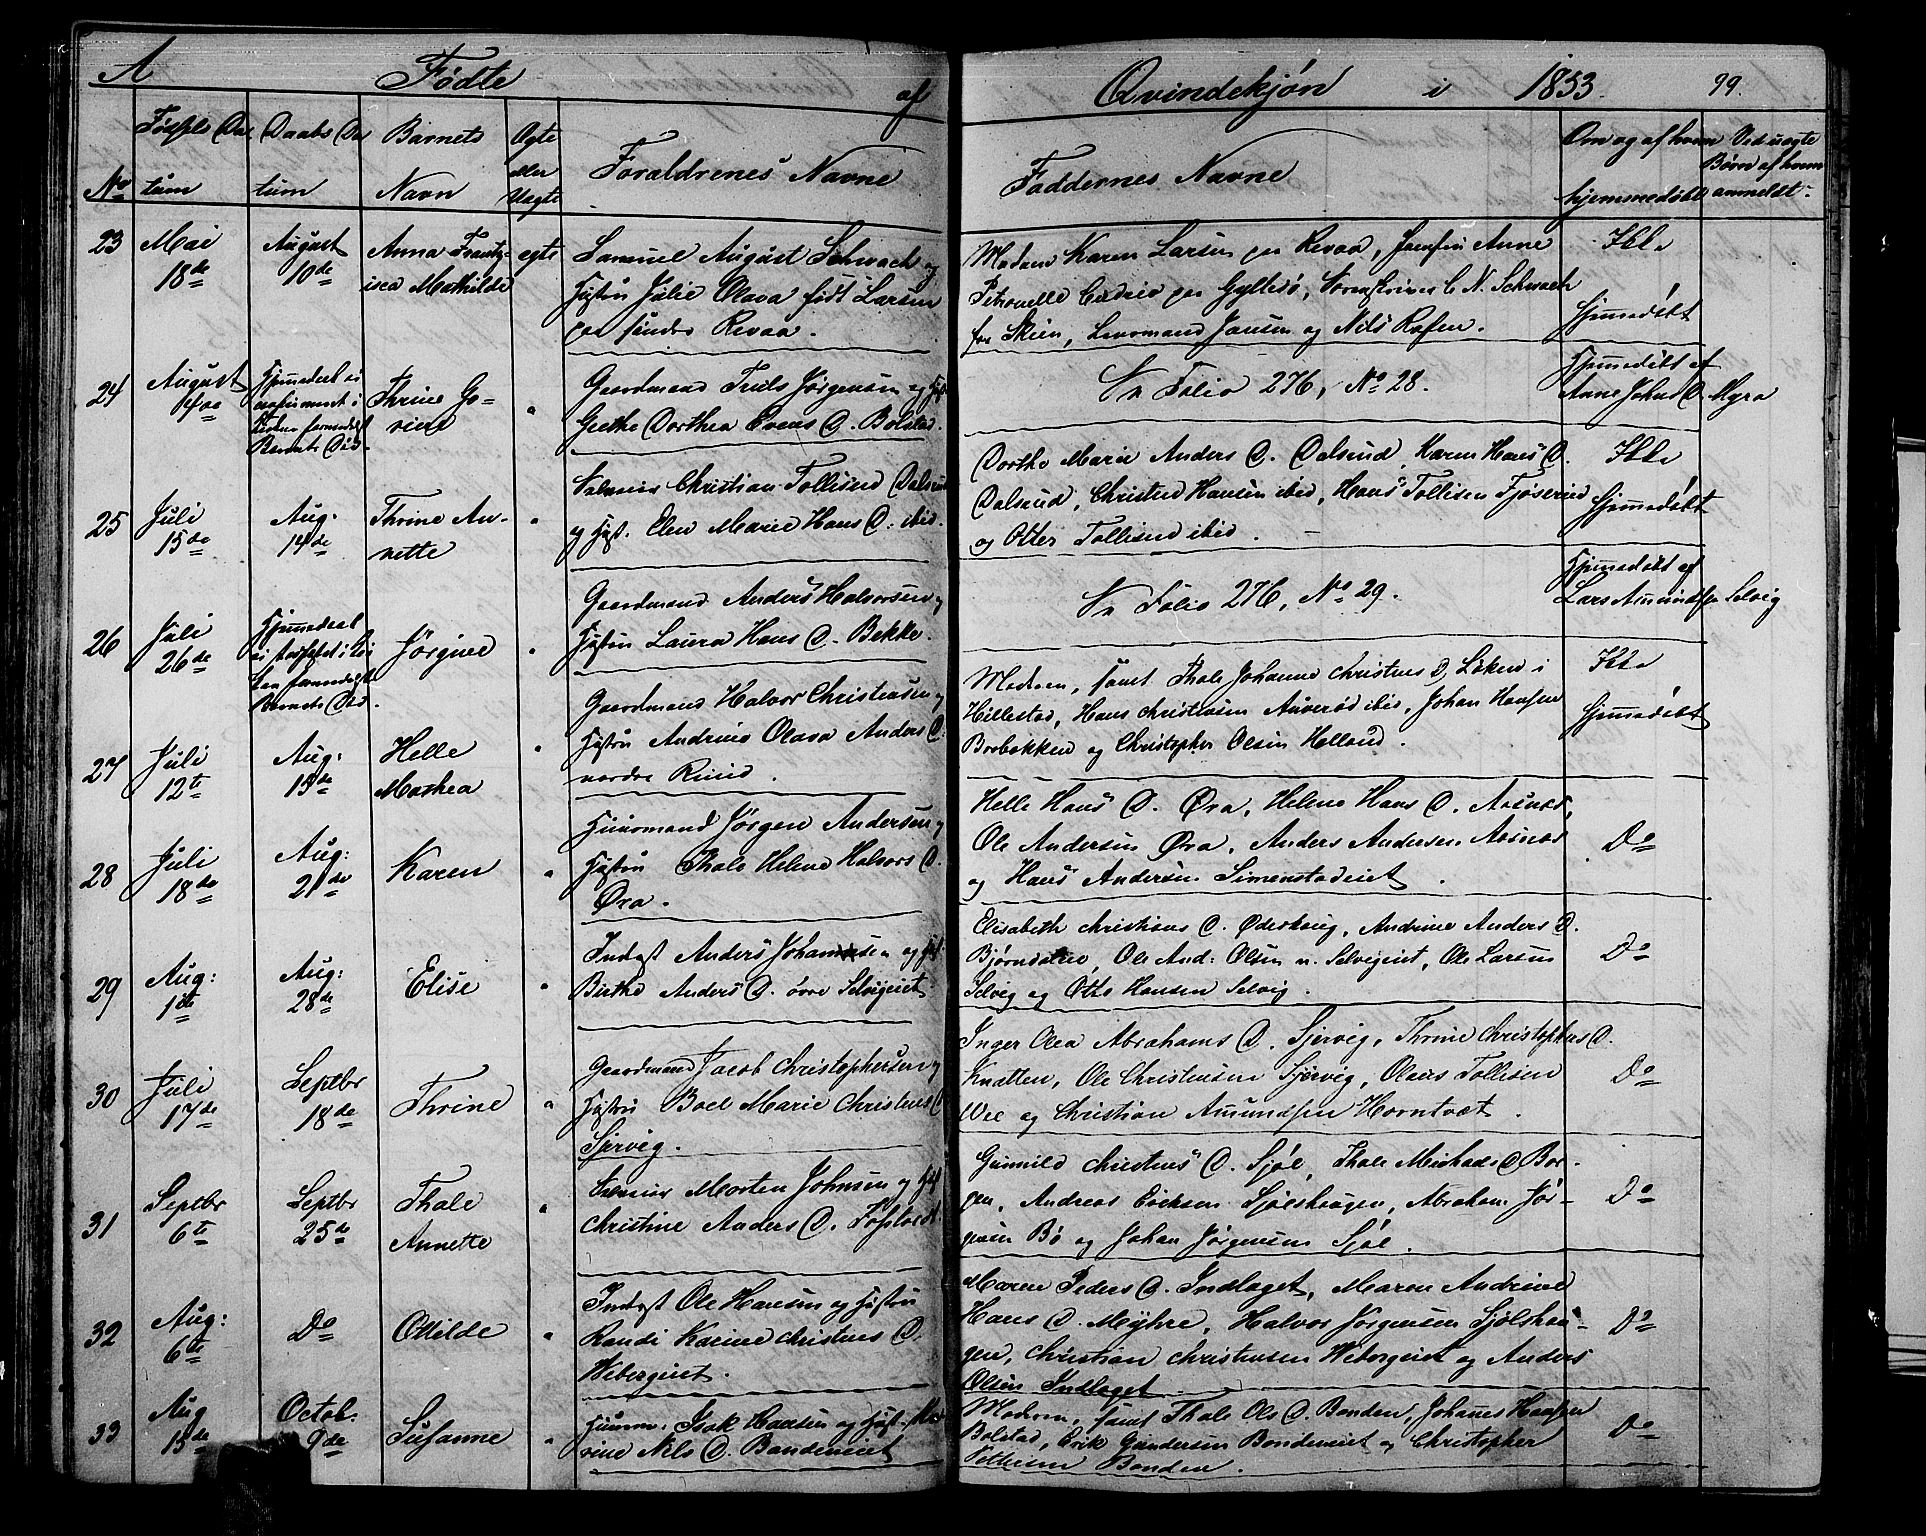 A Fødte af Qvindekjøn i 1853. 99.
No
Fødsels Da-
tum
Daabs Da
tum
Barnets
Navn
Ægte
eller
Uægte
Foraldrenes Navne
Faddernes Navne
Om og af hvem
hjemmedøbt
Ved uægte
Børn af hvem
anmeldt.
23 Mai
18de
August
10de
Anna Frantz-
isca Mathilde
egte
Samuel August Schwach og
Hustru Julie Olava født Larsen
paa søndre Revaa.
Madam Karen Larsen paa Revaa, Jomfru Anne
Petronelle paa Gyllesø, Sorenskriver C. N. Schwach
fra Skien, Jansen og Nils Rafen.
Ikke
hjemedøbt
24 August
14de
Hjemedøbt
Barnets Død.
Thrine Go-
rine
"
Gaardmand Truls Jørgensen og Hust.
Grethe Dorthea Evens D. Bolstad.
Folio 276, No 28.
Hjemedøbt af
Anne Johns D. Myra
25 Juli
15de
Aug:
14de
Thrine An-
nette
"
Christian Tollisen Dalsrud
og Hust. Elen Marie Hans D. ibid.
Dorthe Marie Anders D. Dalsrud, Karen Hans D.
Dalsrud, Christen Hansen ibid, Hans Tollisen
og Otter Tollisen ibid.
Ikke
hjemedøbt
26 Juli
26de
Hjemedøbt
Barnets Død.
Jørgine
"
Gaardmand Anders Halvorsen og
Hustru Laura Hans D. Bekke.
Folio 276, No 29.
Hjemedøbt af
Lars Amundsen Selvig
27 Juli
12te
Aug:
15de
Helle
Mathea
"
Gaardmand Halvor Christensen og
Hustru Andrine Olava Anders D.
nordre
Moderen, samt Thale Johanne Christens D. Løken i
Hillestad, Hans Christensen ibid, Johan Hansen
Brobakken og Christopher Olsen Helland.
Ikke
hjemedøbt
28 Juli
18de
Aug:
21de
Karen
"
Huusmand Jørgen Andersen og
Hustru Thale Helene Halvors D.
Øra.
Helle Hans D. Øra, Helene Hans D. Aasnæs,
Ole Andersen Øra, Anders Andersen Aasnæs
og Hans Andersen Simenstadeiet.
Do
29 Aug:
1te
Aug:
28de
Elise
"
Inderst Anders Johannesen og Hust
Birthe Anders D. øvre Selvigeiet
Elisabeth Christians D. Ødeskoug, Andrine Anders D.
Ole And: Olsen n. Selvigeiet, Ole Larsen
Selvig og Otto Hansen Selvig.
Do
30 Juli
17de
Septbr
18de
Thrine
"
Gaardmand Jacob Christophersen og
Hustru Boel Marie Christens D.
Sjervig.
Inger Olea Abrahams D. Sjervig, Thrine Christophers D.
Knatten, Ole Christensen Sjervig, Olaus Tollisen
Vee og Christian Amundsen Horntvet.
Do
31 Septbr
6te
Septbr
25de
Thale
Annette
"
Morten Johnsen og Hust
Christine Anders D.
Gunnild Christens D. Sjøl, Thale Michals D. Bor-
gen, Andreas Ericksen Sjølshaugen, Abraham Jør-
gensen Bø og Johan Jørgensen Sjøl.
Do
32 Aug:
6te
Do
Otilde
"
Inderst Ole Hansen og Hustru
Randi Karine Christens D.
Vebergeiet.
Maren Peders D. Indlaget, Maren Andrine
Hans D. Myhre, Halvor Jørgensen Sjølshau-
gen, Christian Christensen Vebergeiet og Anders
Olsen Indlaget
Do
33 Aug
15de
Octob.
9de
Susanne
"
Huusm. Isak Hansen og Hust. Ma-
rine Nils D. Bondeneiet
Moderen, samt Thale Ols D. Bonden, Johannes Hansen
Bolstad, Erik Gundersen Bondeneiet og Christopher
Bonden.
Do